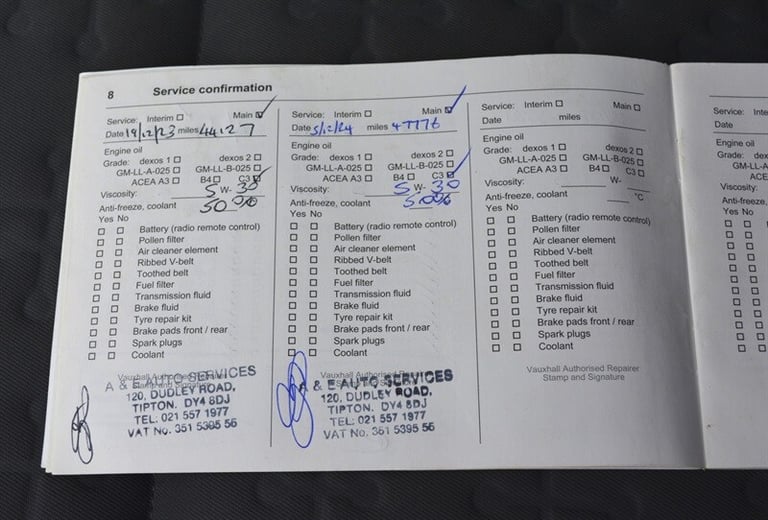 8 Service confirmation
Service: Interim ☐ Main ☑
Date 19/12/23 miles 44127
Engine oil
Grade: dexos 1 ☐ dexos 2 ☐
GM-LL-A-025 ☐ GM-LL-B-025 ☐
ACEA A3 ☐ B4 ☐ C3 ☑
Viscosity: 5 W- 30
Anti-freeze, coolant 50%
Yes No
☐ ☐ Battery (radio remote control)
☐ ☐ Pollen filter
☐ ☐ Air cleaner element
☐ ☐ Ribbed V-belt
☐ ☐ Toothed belt
☐ ☐ Fuel filter
☐ ☐ Transmission fluid
☐ ☐ Brake fluid
☐ ☐ Tyre repair kit
☐ ☐ Brake pads front / rear
☐ ☐ Spark plugs
☐ ☐ Coolant
Vauxhall Authorised Repairer
Stamp and Signature
A & E AUTO SERVICES
120, DUDLEY ROAD,
TIPTON. DY4 8DJ
TEL: 021 557 1977
VAT No. 351 5395 56
Service: Interim ☐ Main ☑
Date 5/12/24 miles 47776
Engine oil
Grade: dexos 1 ☐ dexos 2 ☐
GM-LL-A-025 ☐ GM-LL-B-025 ☐
ACEA A3 ☐ B4 ☐ C3 ☑
Viscosity: 5 W- 30
Anti-freeze, coolant 50%
Yes No
☐ ☐ Battery (radio remote control)
☐ ☐ Pollen filter
☐ ☐ Air cleaner element
☐ ☐ Ribbed V-belt
☐ ☐ Toothed belt
☐ ☐ Fuel filter
☐ ☐ Transmission fluid
☐ ☐ Brake fluid
☐ ☐ Tyre repair kit
☐ ☐ Brake pads front / rear
☐ ☐ Spark plugs
☐ ☐ Coolant
Vauxhall Authorised Repairer
Stamp and Signature
A & E AUTO SERVICES
120, DUDLEY ROAD,
TIPTON. DY4 8DJ
TEL: 021 557 1977
VAT No. 351 5395 56
Service: Interim ☐ Main ☐
Date miles
Engine oil
Grade: dexos 1 ☐ dexos 2 ☐
GM-LL-A-025 ☐ GM-LL-B-025 ☐
ACEA A3 ☐ B4 ☐ C3 ☐
Viscosity: W-
Anti-freeze, coolant °C
Yes No
☐ ☐ Battery (radio remote control)
☐ ☐ Pollen filter
☐ ☐ Air cleaner element
☐ ☐ Ribbed V-belt
☐ ☐ Toothed belt
☐ ☐ Fuel filter
☐ ☐ Transmission fluid
☐ ☐ Brake fluid
☐ ☐ Tyre repair kit
☐ ☐ Brake pads front / rear
☐ ☐ Spark plugs
☐ ☐ Coolant
Vauxhall Authorised Repairer
Stamp and Signature
Service: Inte
Date
Engine oil
Grade: dexo
GM-LL-A
ACE
Viscosity:
Anti-freeze,
Yes No